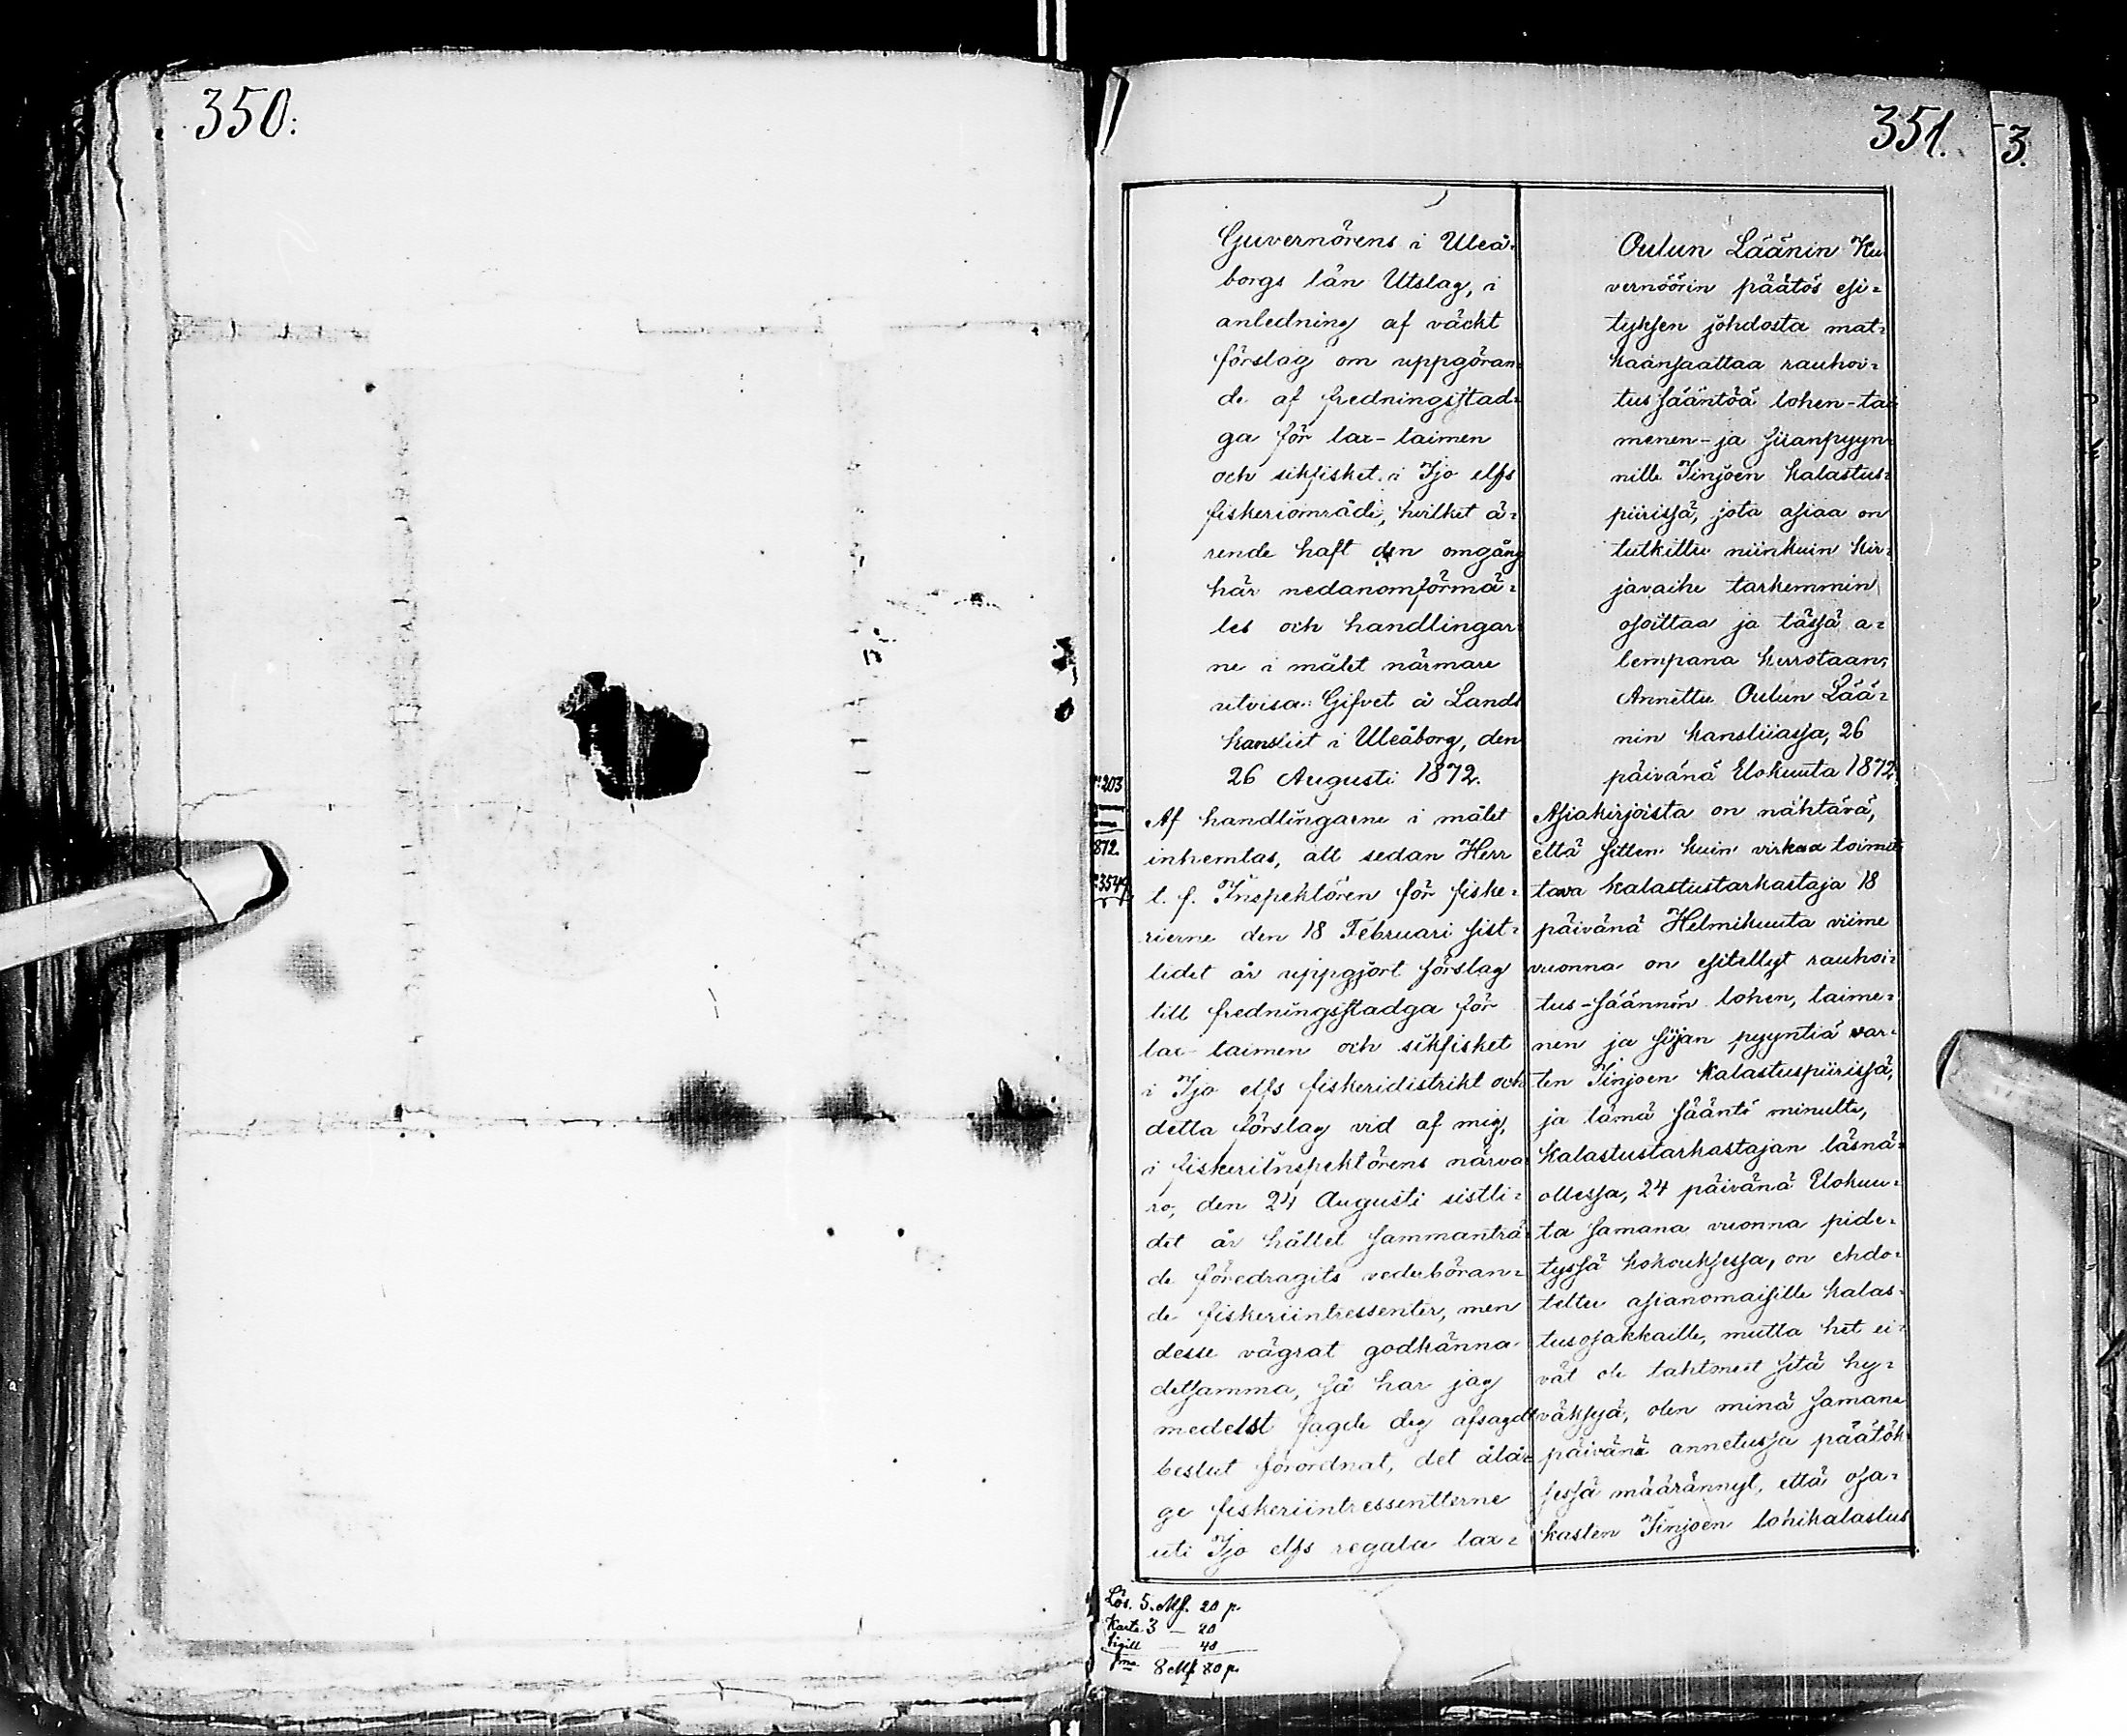 350:
351.
3.
Guvernörens i Uleå-
borgs län Utslag, i
anledning af väckt
förslag om uppgöran-
de af fredningsstad-
ga för lax-taimen
och sikfisket i Ijo elfs
fiskeriområde, hvilket ä-
rende haft den omgång
här nedanomförmä-
les och handlingar-
ne i målet närmare
utvisa: Gifvet å Lands
kansliet i Uleåborg, den
26 Augusti 1872.
№ 203
872.
3549
Af handlingarne i målet
inhemtas, att sedan Herr
t. f. Inspektören för fiske-
rierne den 18 Februari sist-
lidet år uppgjort förslag
till fredningsstadga för
lax- taimen och sikfisket
i Ijo elfs fiskeridistrikt och
detta förslag vid af mig,
i fiskeriinspektörens närva-
ro, den 24 Augusti sistli-
det år hållet sammanträ-
de föredragits vederböran-
de fiskeriintressenter, men
desse vägrat godkänna
detsamma, så har jag
medelst sagde dag afsagdt
beslut förordnat, det ålåt-
ge fiskeriintressenterne
uti Ijo elfs regala lax-
Oulun Läänin Ku-
vernöörin päätös esi-
tyksen johdosta mat-
kaansaattaa rauhoi-
tus sääntöä lohen-tai-
menen- ja siianpyyn-
nille Iinjoen kalastus-
piirissä, jota asiaa on
tutkittu niinkuin kir-
javaihe tarkemmin
osoittaa ja tässä a-
lempana kerrotaan;
Annettu Oulun Lää-
nin kansliiassa, 26
päivänä Elokuuta 1872.
Asiakirjoista on nähtävä,
että sitten kuin virkaa toimit-
tava kalastustarkastaja 18
päivänä Helmikuuta viime
vuonna on esitellyt rauhoi-
tus-säännön lohen, taime-
nen ja siijan pyyntiä var-
ten Iinjoen kalastuspiirissä,
ja tämä sääntö minulta,
kalastustarkastajan läsnä-
ollessa, 24 päivänä Elokuu-
ta samana vuonna pide-
tyssä kokouksessa, on ehdo-
teltu asianomaisille kalas-
tusosakkaille, mutta het ei-
vät ole tahtoneet sitä hy-
väksyä, olen minä samana
päivänä annetussa päätök-
sessä määrännyt, että osa-
kasten Iinjoen lohikalastus
Lös. 5. Mf. 20 p.
Karta 3 — 20
Sigill — 40
Sma 8 Mf 80 p.